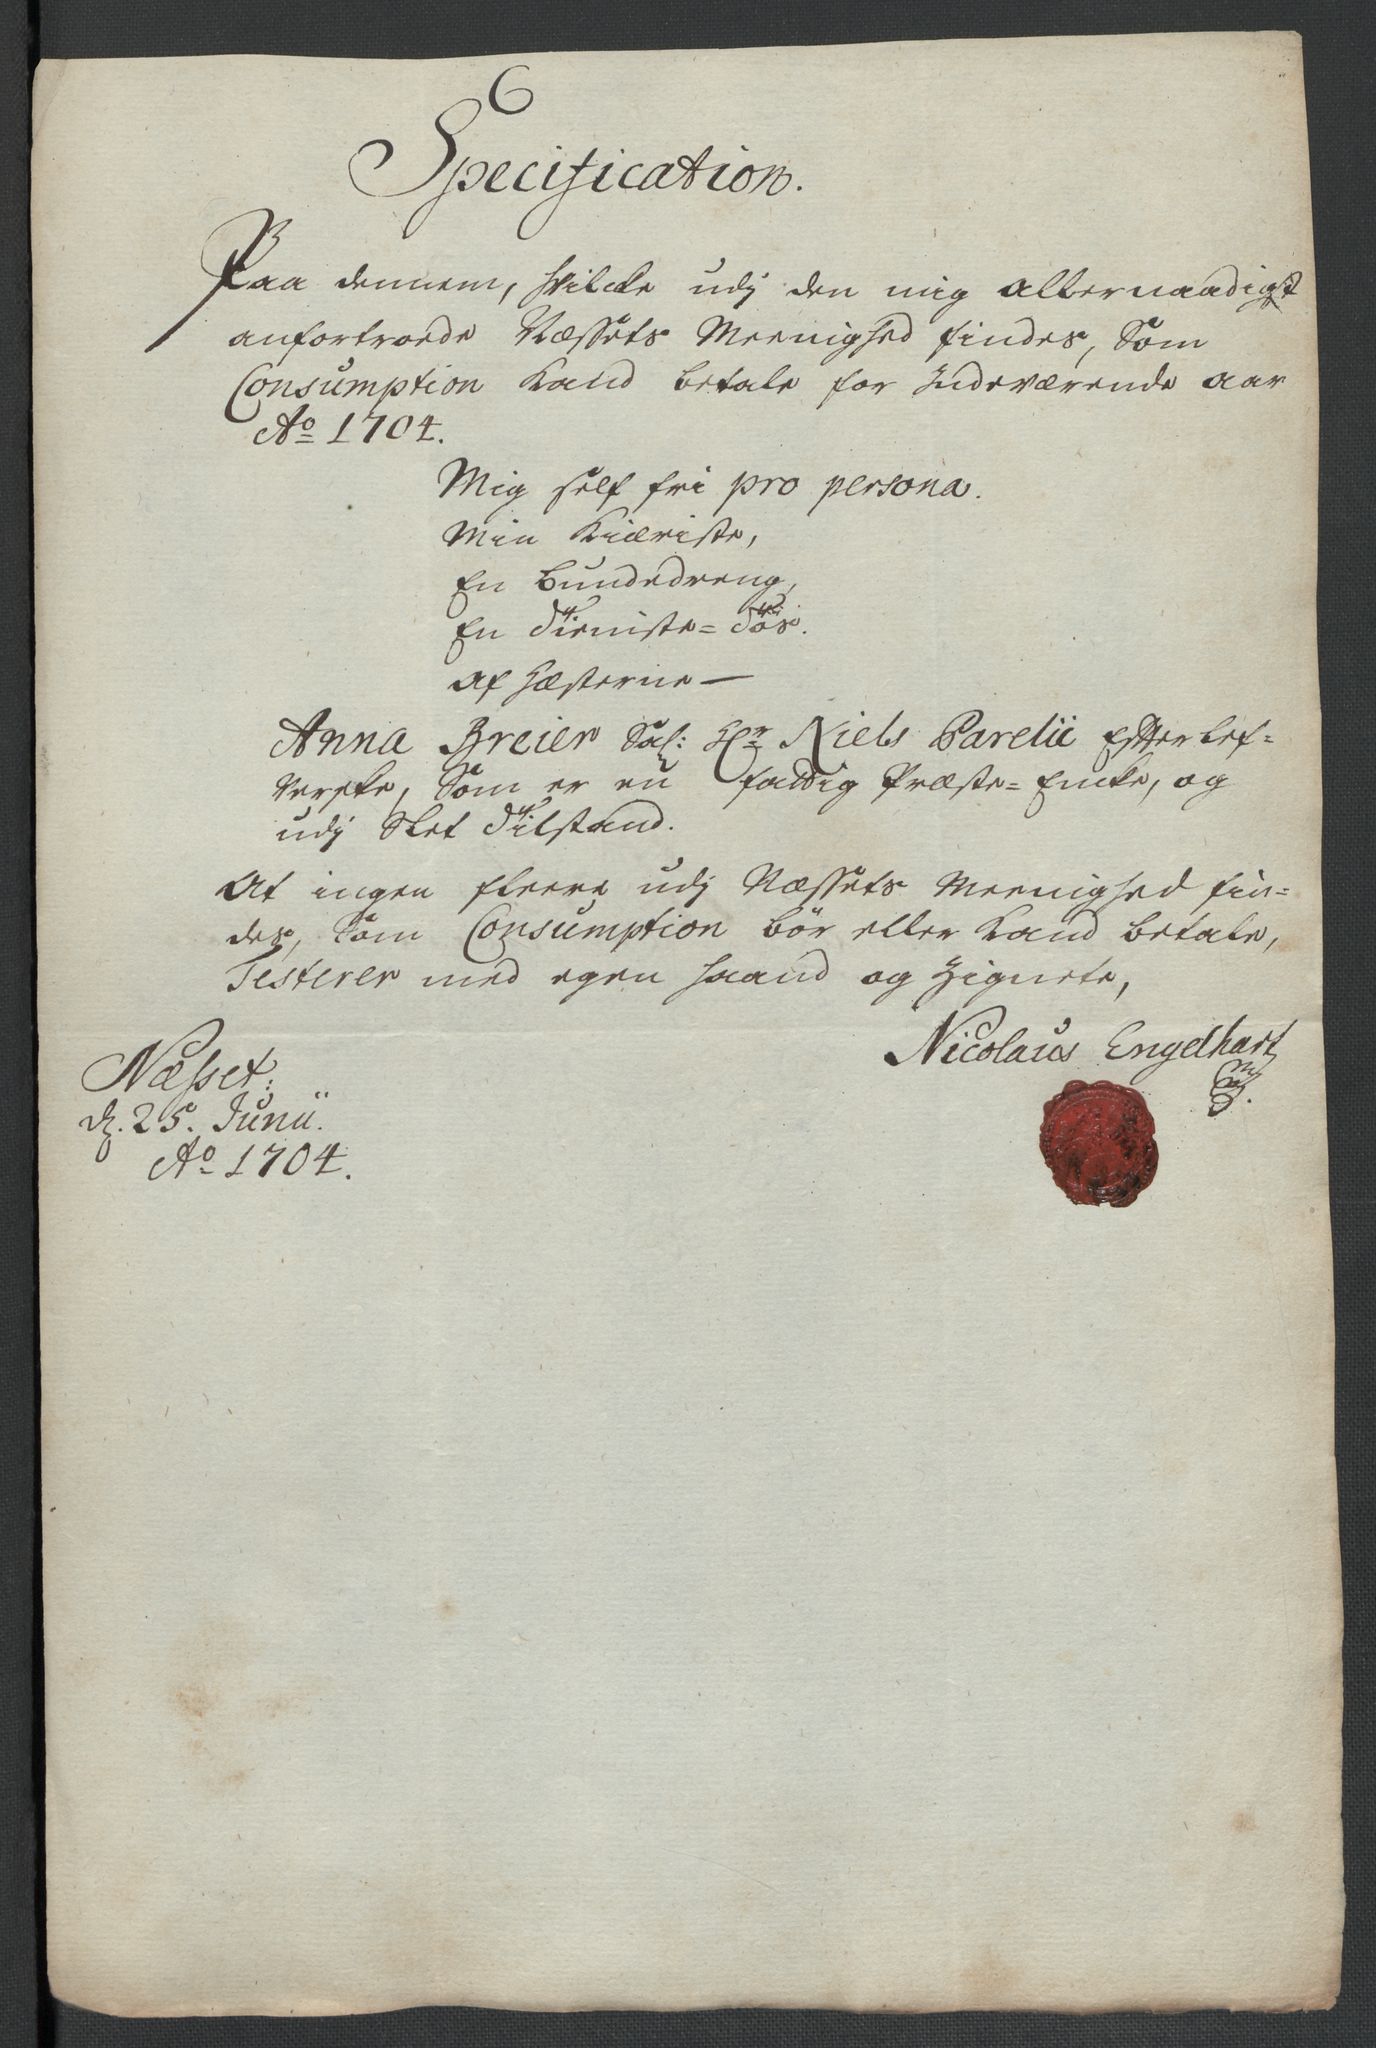 6
Specification.
Paa dennem, hvilcke udj den mig allernaadigst
anfortroede Næssets Meenighed findes, Som
Consumption Kand betale for Indeværende aar
Ao 1704.
Mig self fri pro persona.
Min Kiæriste,
En Bundedreng,
En Tieniste=Tøs.
af Hæsterne —
Anna Breier Sal: Hr Niels Parelii Efterlef=
verske, Som er en fattig Præste=Encke, og
udj Slet Tilstand.
At ingen fleere udj Næssets Meenighed fin=
des, Som Consumption bör eller Kand betale,
Testerer med egen haand og Zignete,
Nicolaus Engelhart
Mpp.
Næsset:
d. 25. Junii.
Ao 1704.